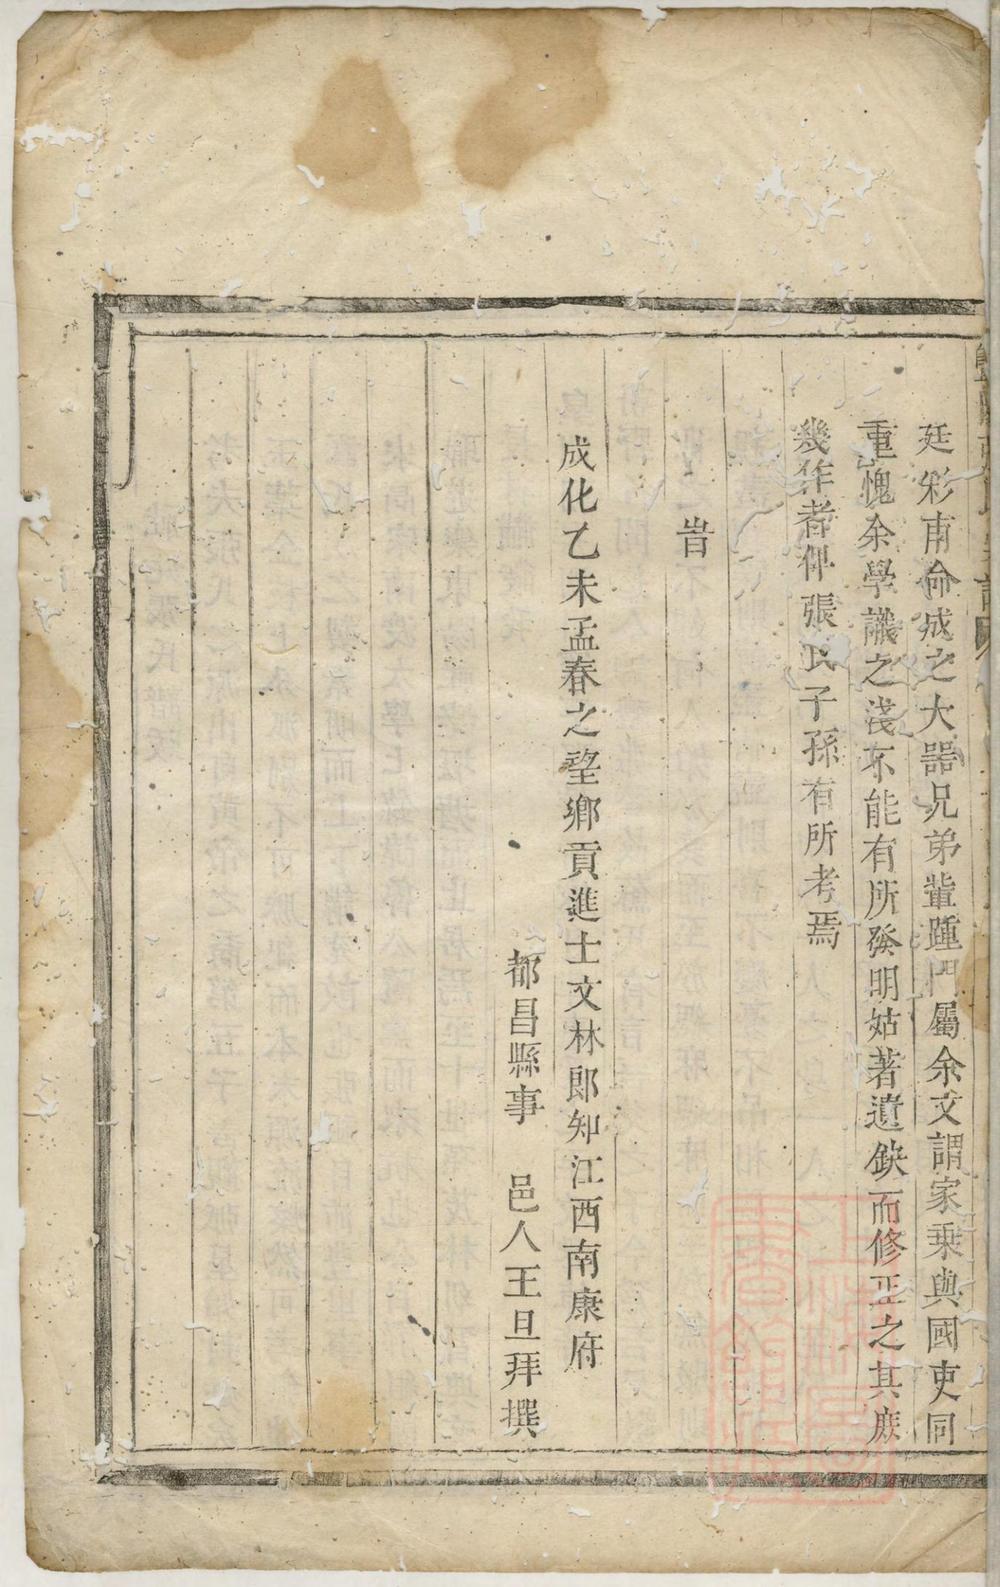 廷彩甫命成之大器兄弟輩踵門屬余文謂家乗與國吏同
重愧余學識之淺不能有所發明姑著遺鈌而修正之其庶
幾作者俾張氏子孫有所考焉
旹
成化乙未孟春之望鄉貢進士文林郎知江西南康府
都昌縣事 邑人王旦拜撰